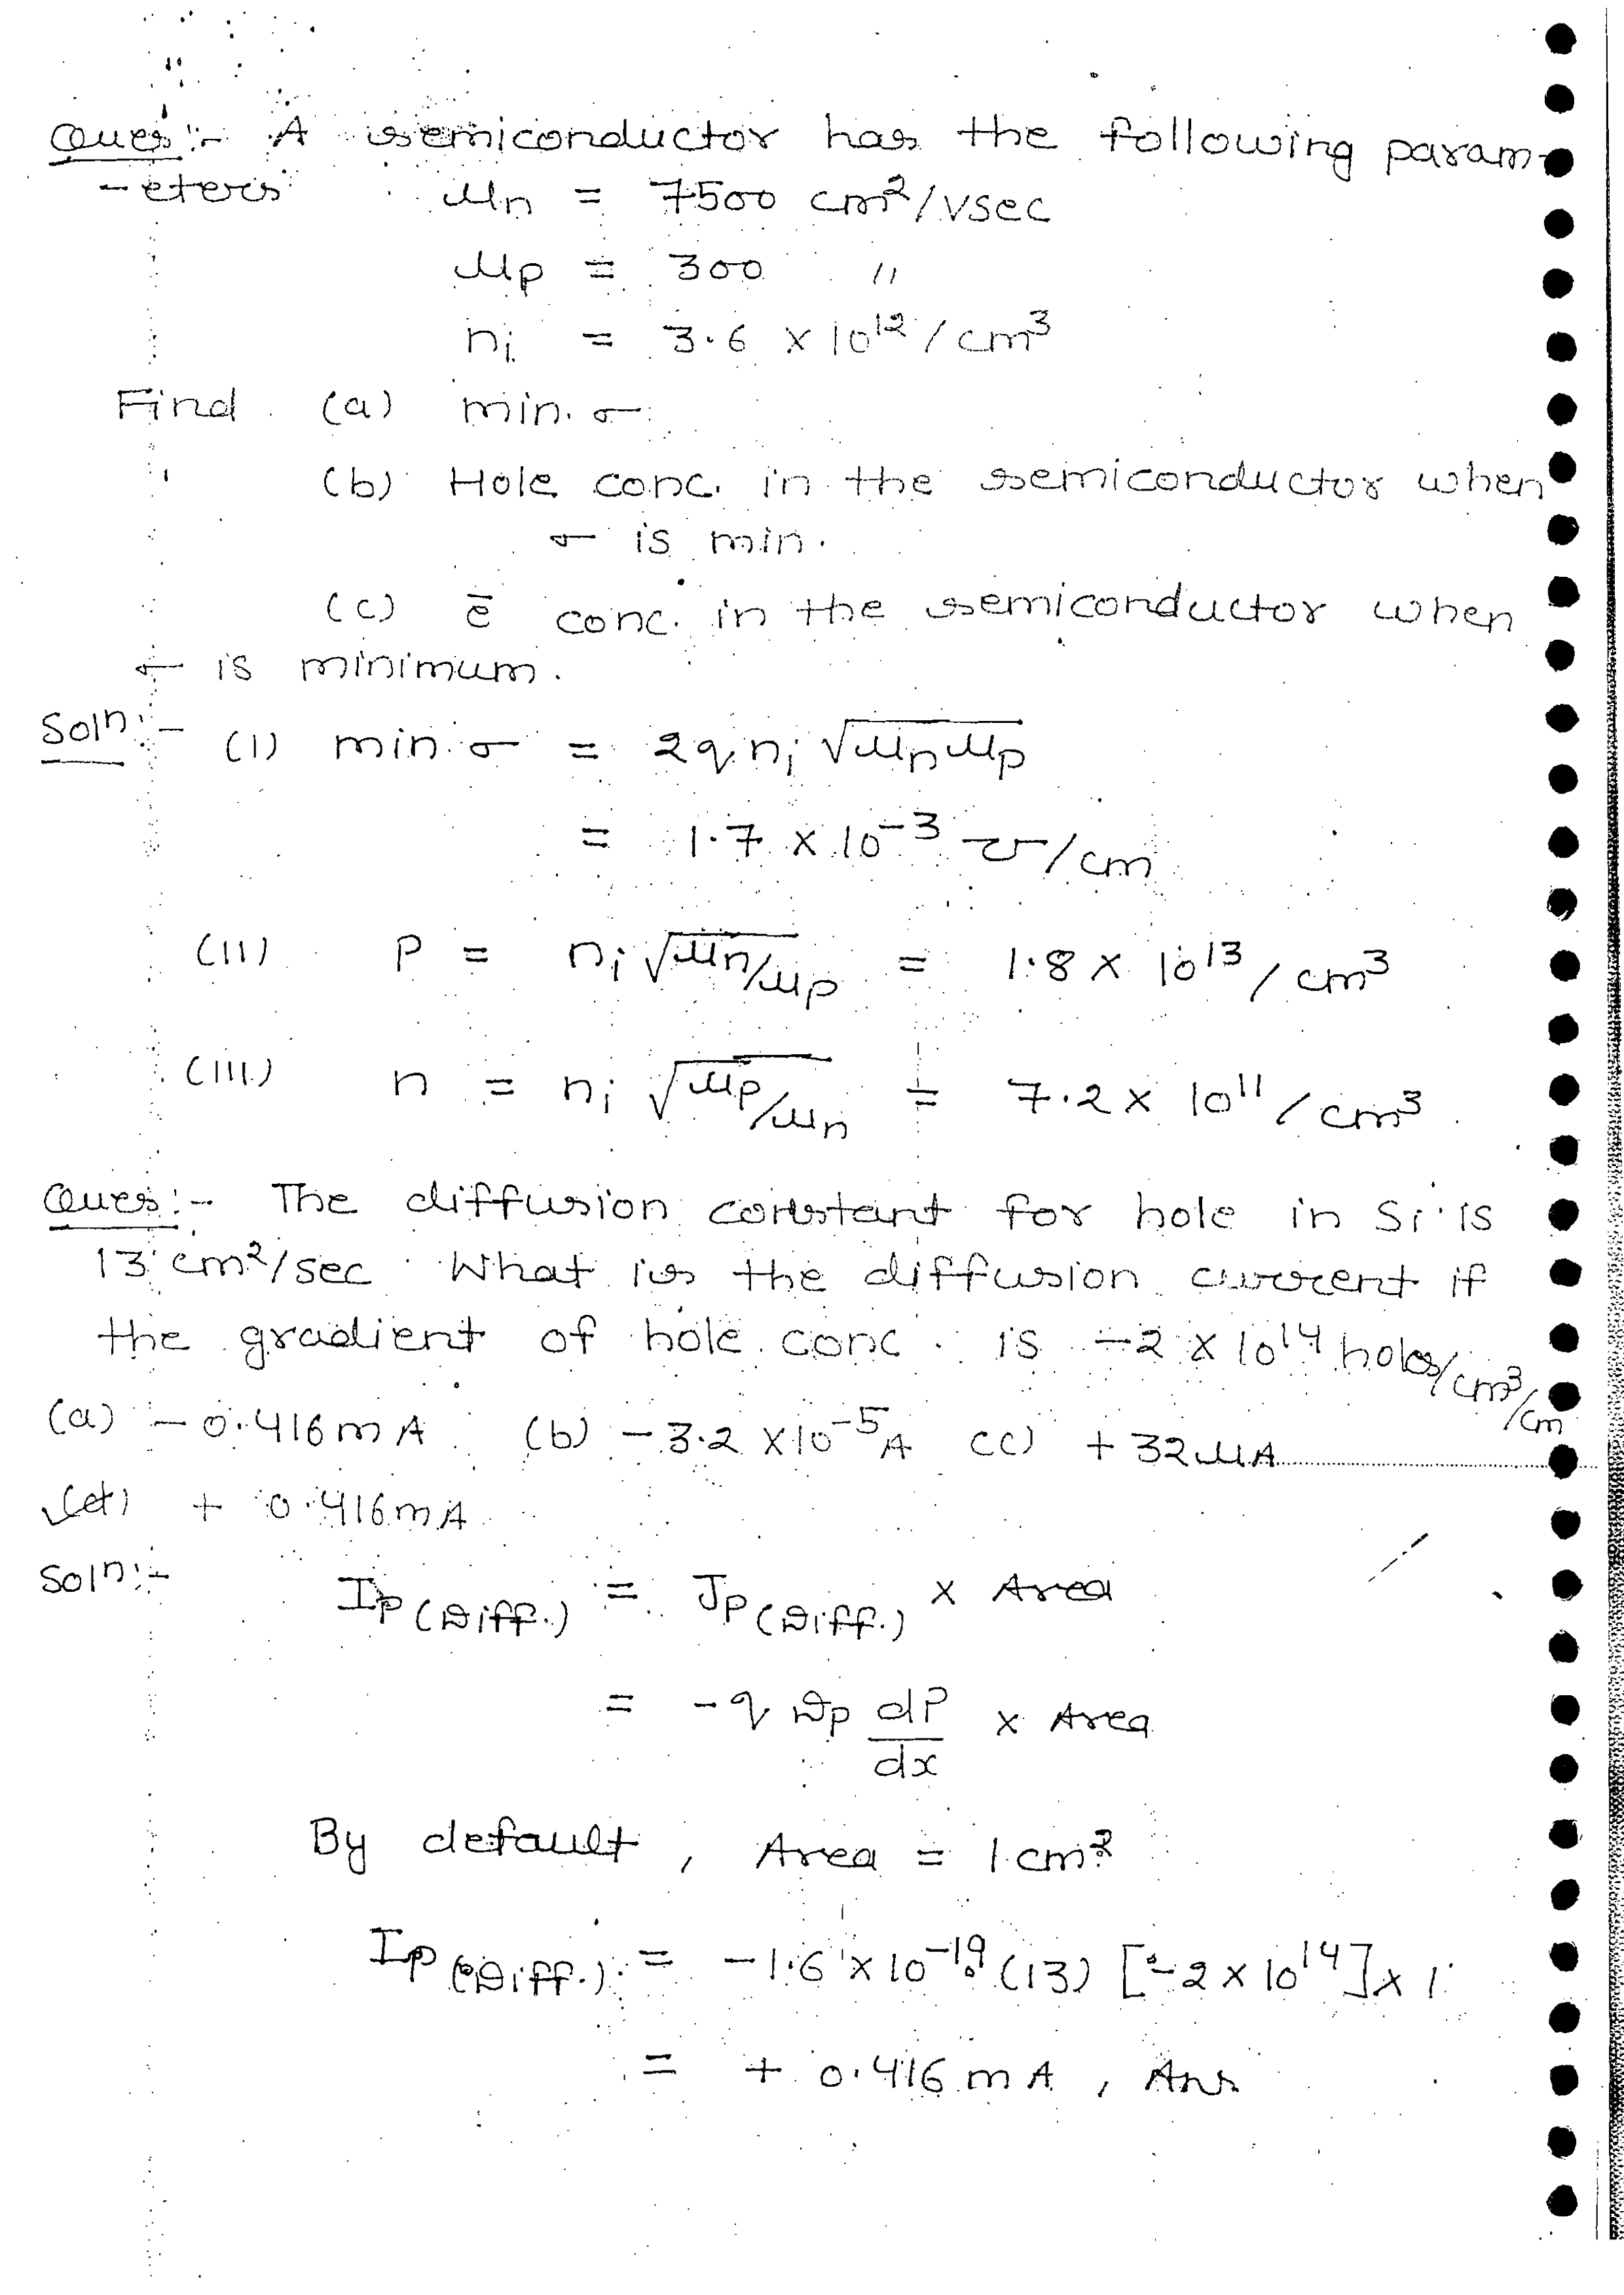 Ques :- A semiconductor has the following param-
-eters μn = 7500 cm²/Vsec
μp = 300 "
ni = 3.6 × 10¹² / cm³
Find (a) min. σ
(b) Hole conc. in the semiconductor when
σ is min.
(c) ē conc. in the semiconductor when
σ is minimum.
Solⁿ :- (I) min σ = 2qni √μnμp
= 1.7 × 10⁻³ ℧/cm
(II) P = ni √μn/μp = 1.8 × 10¹³ / cm³
(III) n = ni √μp/μn = 7.2 × 10¹¹ / cm³
Ques :- The diffusion constant for hole in Si is
13 cm²/sec. What is the diffusion current if
the gradient of hole conc. is -2 × 10¹⁴ holes/cm³/cm
(a) - 0.416 mA (b) - 3.2 × 10⁻⁵ A (c) + 32 μA
✓(d) + 0.416 mA
Solⁿ :- Ip (Diff.) = Jp (Diff.) × Area
= - q Dp dP/dx × Area
By default, Area = 1 cm²
Ip (Diff.) = -1.6 × 10⁻¹⁹ (13) [-2 × 10¹⁴] × 1
= + 0.416 mA, Ans